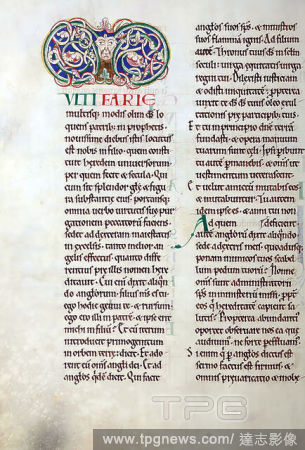 VLTI FARIE
multisq; modis olim ds lo
quens patrib; in prophetis
nouissime dieb; istis locutus
est nobis in filio. quem consti
tuit heredem uniuersorum.
per quem fecit & secula. Qui
cum sit splendor glię & figu
ra substantię eius. portansq;
omnia uerbo uirtutis suę pur
gationem peccatorum faciens.
sedet ad dexteram maiestatis
in excelsis. tanto melior an
gelis effectus. quanto diffe
rentius pre illis nomen here
ditauit. Cui eni dixit aliqn
do anglorum. filius meus es tu
ego hodie genui te. & rursum
ego ero illi in patre. & ipse erit
michi in filiu: Et cu iterum
introducit primogenitum
in orbem terrę: dicit. Et ado
rent eu oms angli dei. Et ad
anglos qde dicit. Qui facit
anglos suos sps. & ministros
suos flammā ignis. Ad filium
aute. Thronus tuus ds in sclm
scli: uirga equitatis uirga
regni tui. Dilexisti iusticiam
& odisti iniquitate: ppterea
unxit te ds ds tuus oleo exul
tationis pre participib; tuis.
Et tu in principio dne terrā
fundasti. & opera manuum
tuarum sunt celi. Ipsi peribunt
tu aute pmanebis. & oms ut
uestimentum ueterascent.
Et uelut amictū mutabis eos
& mutabuntur. Tu autem
idem ipse es. & anni tui non
deficient.
Ad quem aute anglorū dixit aliqndo.
sede a dextris meis. quoadusq;
ponam inimicos tuos scabel
lum pedum tuorū: Nonne
oms sunt administratorii
sps in ministeriū missi. ppt
eos q hereditate capient sa
lutis: Propterea abundanti
oportet obseruare nos ea quę
audiuim. ne forte pefluam.
Si enim q p anglos dictus est
sermo factus est firmus. &
omnis preuaricatio & inob
TPG
www.tpgnews.com/ 達志影像